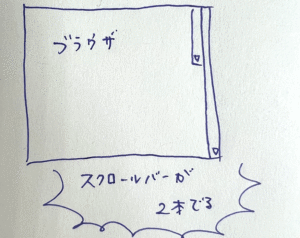 ブラウザ
スクロールバーが
2本でる